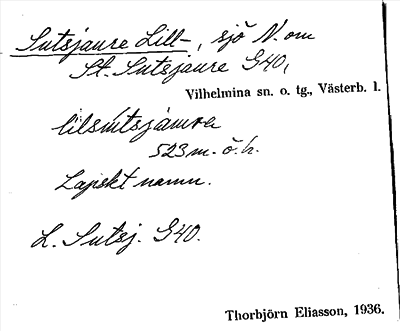 Sutsjaure Lill-, sjö N. om
St. Sutsjaure G40,
Vilhelmina sn. o. tg., Västerb. l.
523 m. ö. h.
Lapskt namn.
L. Sutsj. G40.
Thorbjörn Eliasson, 1936.